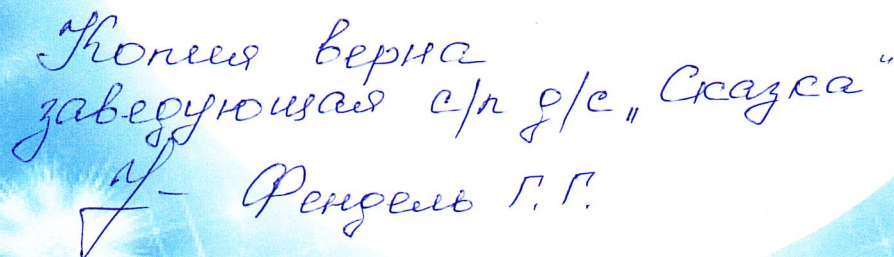 Копия верна
заведующая с/п д/с „Сказка“
Фендель Г. Г.